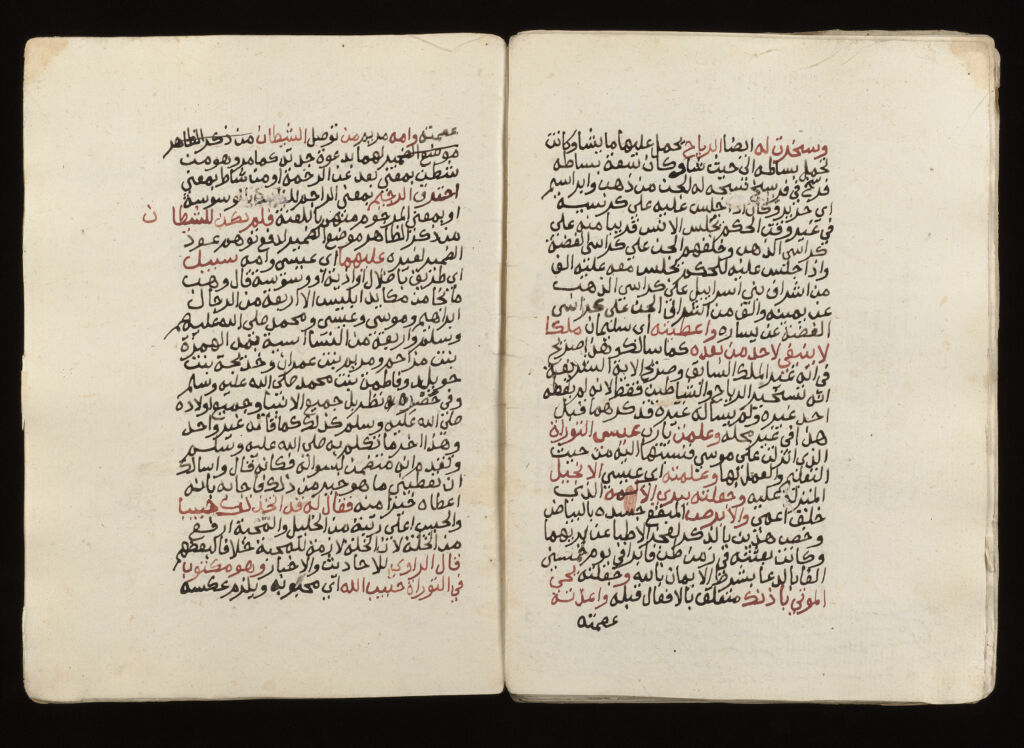 وسخرت له ايضا الرياح يحمل عليها ما يشا وكانت
تحمل بساطه الى حيث شا وكان سعة بساطه
فرسخ في فرسخ نسجه له الجن من ذهب وابراسم
اي حرير وكان اذا جلس عليه على كرسيه
في غير وقت الحكم تجلس الانس قريبا منه على
كراسي الذهب وخلفهم الجن على كراسي الفضة
واذا جلس عليه للحكم يجلس معه عليه الف
من اشراف بني اسراييل على كراسي الذهب
عن يمينه والف من اشراف الجن على كراسي
الفضة عن يساره واعطيته اي سليمان ملكا
لا ينبغي لاحد من بعده كما سالك وهذا صريح
في انه غير الملك السابق وصريح الاية الشريفة
انه تسخير الرياح والشياطين فقط لانه لم يعطه
احد غيره ولم يساله غيره قد كرهما قبل
هذا في غير محله وعلمت يا رب عيسى التوراة
الذي انزلت على موسى فنسبتها اليه من حيث
التعليم والعمل بها وعلمته اي عيسى الانجيل
المنزله عليه وجعلته يبري الاكمه الذي
خلق اعمى والابرص المبقع جسده بالبياض
وخص هذين بالذكر لعجز الاطبا عن ابريهما
وكانت بعثته في زمن طب فابرا في يوم خمسين
الفا بالدعا بشرط الايمان بالله وجعلته يحي
الموتى باذنك متعلق بالافعال قبله واعذته
عصمته
عصمته وامه مريم من توصل الشيطان من ذكر الظاهر
موضع الضمير لهما بدعوة جدته كما مر وهو من
شطن بمعنى بعد عن الرحمة او من شاط بمعنى
احترق الرجيم بمعنى الراجم للناس بوسوسته
او بمعنى المرجوم منهم باللعنة فلم يكن للشيطان
من ذكر الظاهر موضع الضمير لدفع توهم عود
الضمير لغيره عليهما اي عيسى وامه سبيل
اي طريق باضلال او اذية او وسوسة قال وهب
ما نجا من مكايد ابليس الا اربعة من الرجال
ابراهيم وموسى وعيسى ومحمد صلى الله عليهم
وسلم واربعة من النسا آسية بمد الهمزة
بنت مزاحم ومريم بنت عمران وخديجة بنت
خويلد وفاطمة بنت محمد صلى الله عليه وسلم
وفي حصره نظر بل جميع الانبيا وجميع اولاده
صلى الله عليه وسلم كذلك كما قاله غير واحد
وهذا اخر ما تكلم به صلى الله عليه وسلم
وتقدم انه متضمن لسواله فكانه قال واسالك
ان تعطيني ما هو خير من ذلك فاجابه بانه
اعطاه خيرا منه فقال له قد اتخذتك حبيبا
والحبيب اعلى رتبة من الخليل والمحبة ارفع
من الخلة لان الخلة لازمة للمحبة خلافا لبعضهم
قال الراوي للاحاديث والاخبار وهو مكتوب
في التوراة حبيب الله اي محبوبه ويلزم عكسه